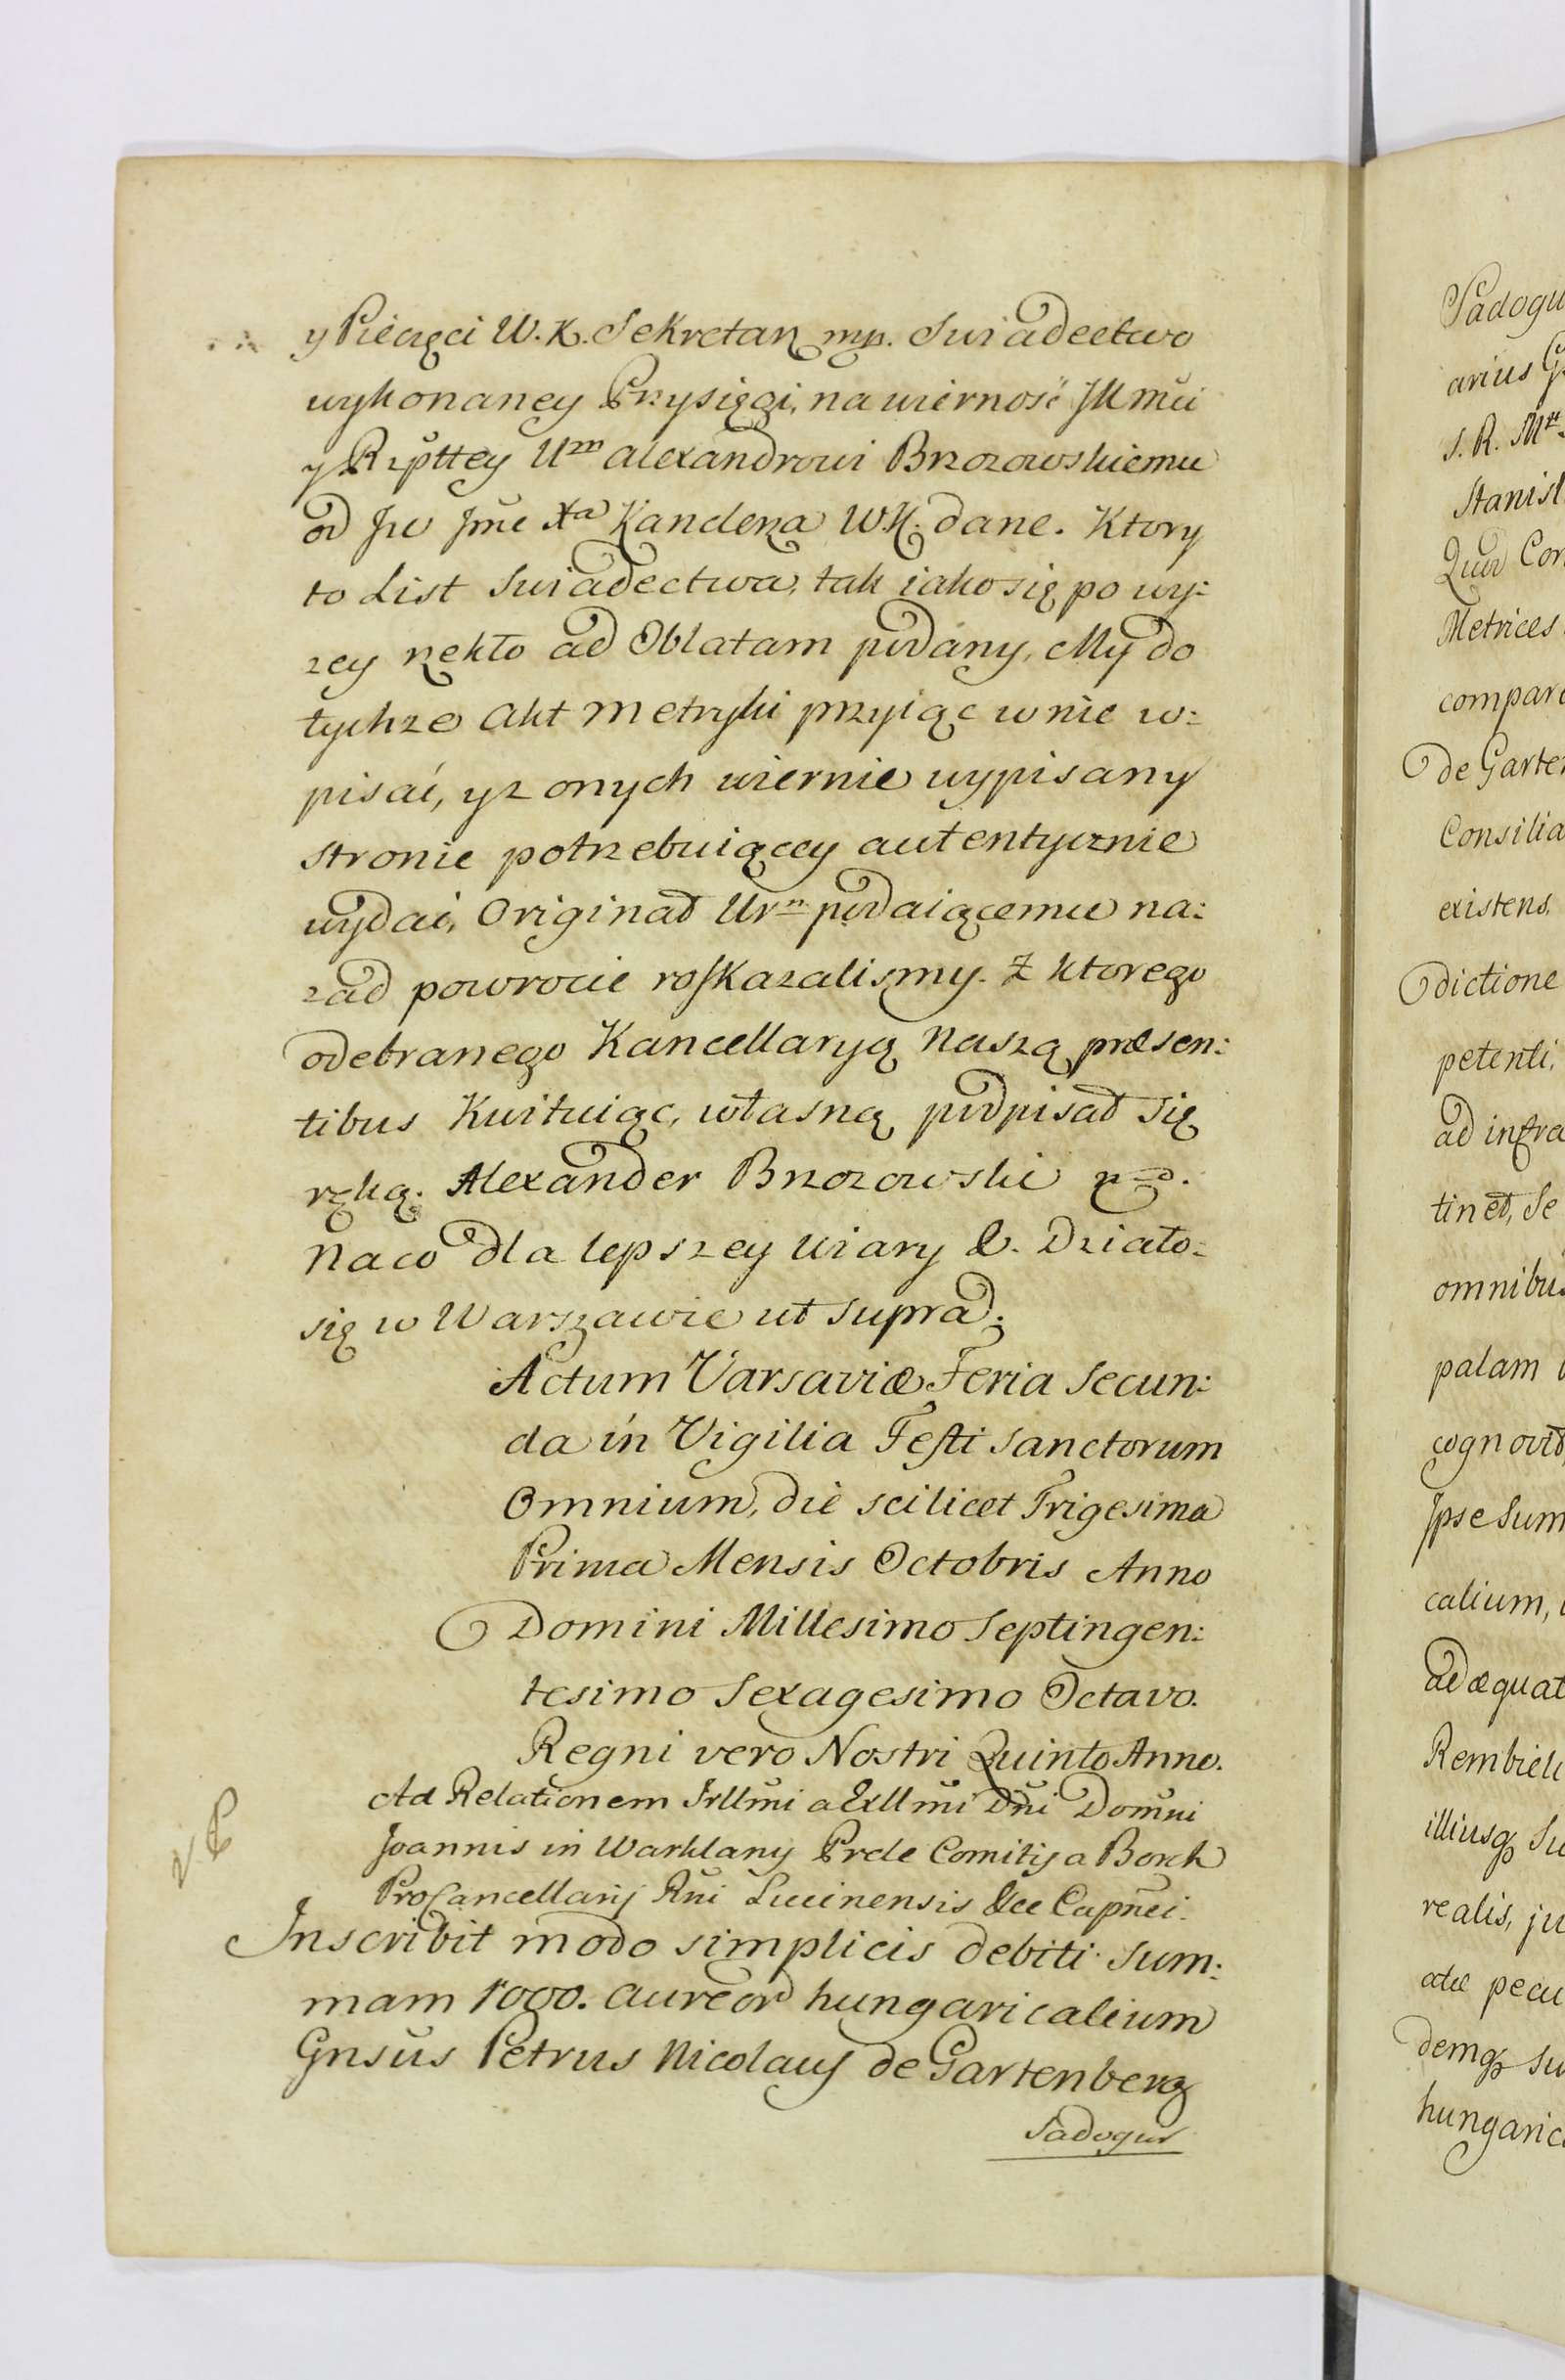 y Pieczęci W. K. Sekretarz mp. Swiadectwo
wykonaney Przysięgi, na wierność JKmći
y Rzpttey Urm Alexandrowi Brzozowskiemu
od Jw Jmć Xa Kanclerza W.K. dane. Ktory
to List Swiadectwa, tak iako się po wy:
zey rzekło ad Oblatam podany, My do
tychze Akt Metryki przyiąć w nie w:
pisać, y z onych wiernie wypisany
stronie potrzebuiącey autentycznie
wydać, Originał Urn podaiącemu na:
zad powrocić roskazalismy. Z ktorego
odebranego Kancellaryą Naszą præsen:
tibus Kwituiąc, własną podpisał się
ręką. Alexander Brzozowski
Na co dla lepszey wiary &. Działo:
się w Warszawie ut supra.
Actum Varsaviæ Feria Secun:
da in Vigilia Festi Sanctorum
Omnium, die scilicet Trigesima
Prima Mensis Octobris Anno
Domini Millesimo Septingen:
tesimo Sexagesimo Octavo.
Regni vero Nostri Quinto Anno.
Ad Relationem Irllmi a Exllmi Dni Domini
Joannis in Warklany Prele Comitis a Borch
ProCancellarij Rni Lucinensis &cc Capnei.
Inscribit modo simplicis debiti Sum:
mam 1000. aureor hungaricalium
Gnsus Petrus Nicolaus de Gartenberg
Sadogur
Sadogu
arius
S. R. Mtt
Stanisl
Quod Con
Metrices
compar
de Garten
Consilia
existens.
dictione
petenti,
ad infra
tinet, Se
omnibu
palam
cognovit
Ipse Sum
calium,
adæquat
Rembieli
illiusq Su
realis, ju
atæ pecu
demq su
hungaric